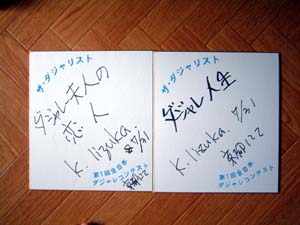 ザ・ダジャリスト
ダジャレ夫人の
恋人
K. Iizuka. 7/31
京都にて
第1回全日本
ダジャレコンテスト
ザ・ダジャリスト
ダジャレ人生
K. Iizuka. 7/31
京都にて
第1回全日本
ダジャレコンテスト